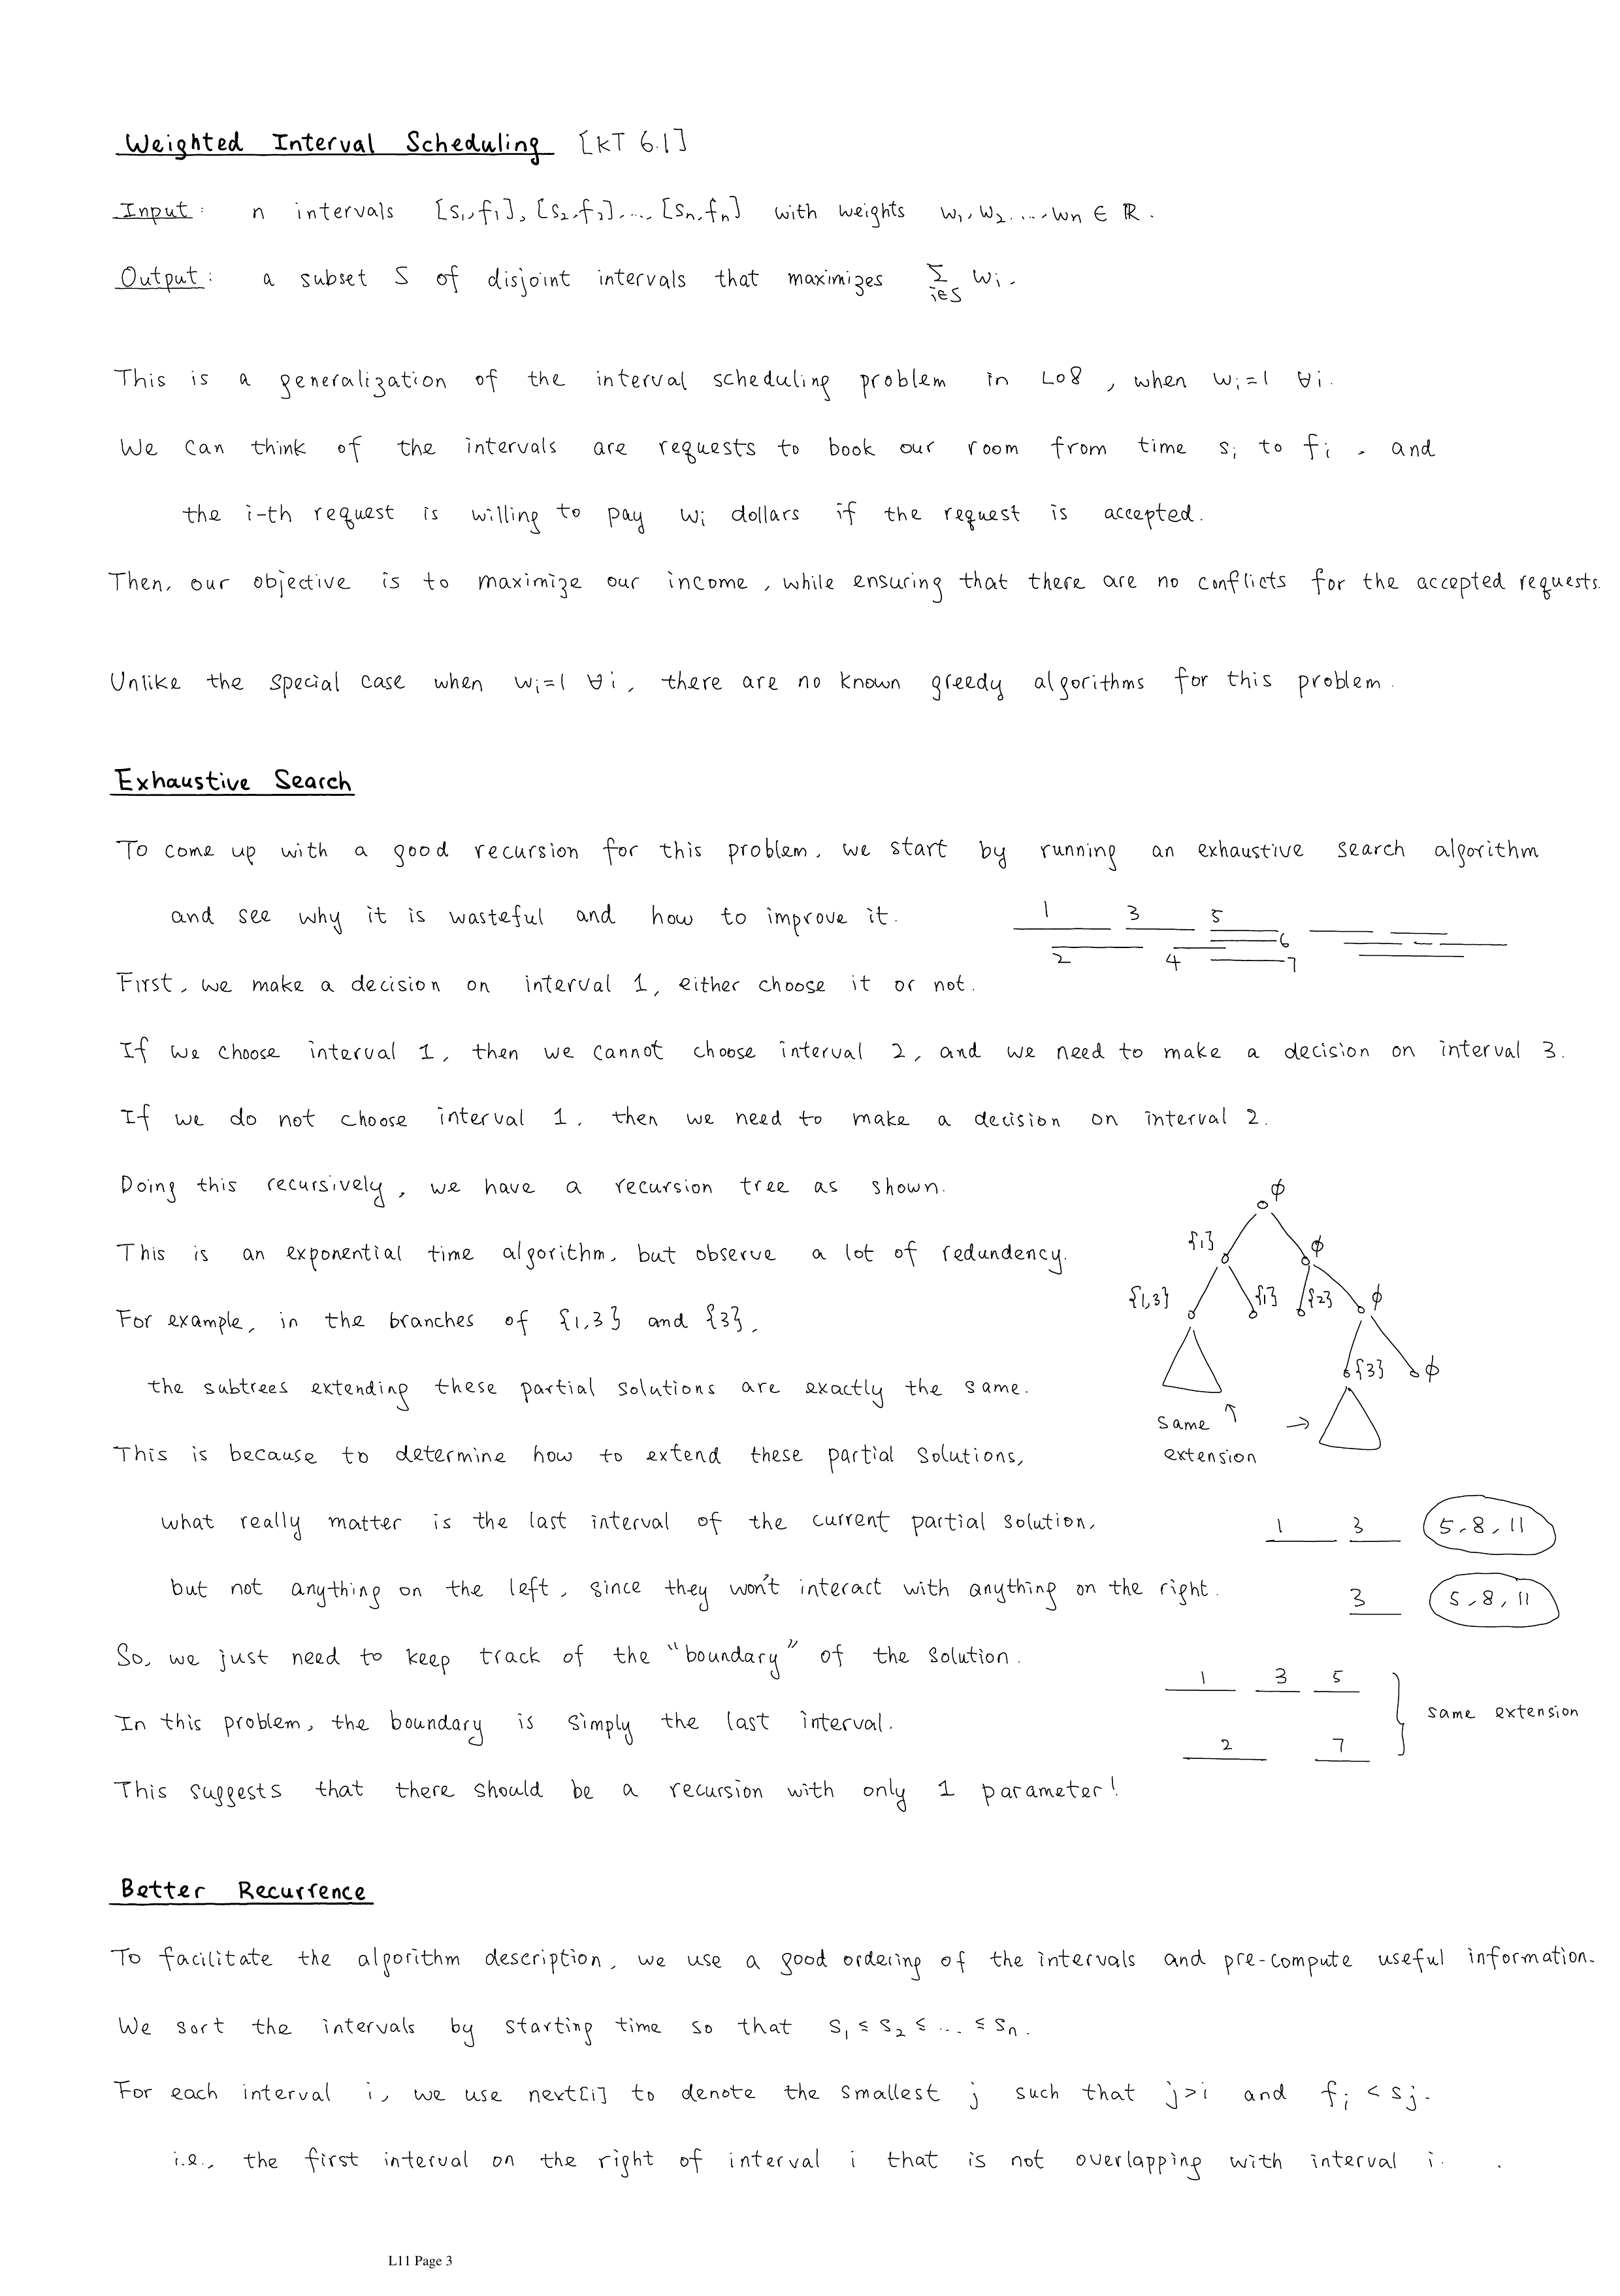 Weighted Interval Scheduling [KT 6.1]
Input: n intervals [s₁,f₁], [s₂,f₂],..., [sₙ,fₙ] with weights w₁,w₂,...,wₙ ∈ ℝ.
Output: a subset S of disjoint intervals that maximizes Σ_{i∈S} wᵢ.
This is a generalization of the interval scheduling problem in L08, when wᵢ=1 ∀i.
We can think of the intervals are requests to book our room from time sᵢ to fᵢ, and
the i-th request is willing to pay wᵢ dollars if the request is accepted.
Then, our objective is to maximize our income, while ensuring that there are no conflicts for the accepted requests.
Unlike the special case when wᵢ=1 ∀i, there are no known greedy algorithms for this problem.
Exhaustive Search
To come up with a good recursion for this problem, we start by running an exhaustive search algorithm
and see why it is wasteful and how to improve it.
1 3 5
6
2 4 7
First, we make a decision on interval 1, either choose it or not.
If we choose interval 1, then we cannot choose interval 2, and we need to make a decision on interval 3.
If we do not choose interval 1, then we need to make a decision on interval 2.
Doing this recursively, we have a recursion tree as shown.
∅
This is an exponential time algorithm, but observe a lot of redundency.
{1} ∅
For example, in the branches of {1,3} and {3},
{1,3} {1} {2} ∅
the subtrees extending these partial solutions are exactly the same.
{3} ∅
same ↑ →
extension
This is because to determine how to extend these partial solutions,
what really matter is the last interval of the current partial solution,
1 3 5,8,11
but not anything on the left, since they won't interact with anything on the right.
3 5,8,11
So, we just need to keep track of the "boundary" of the solution.
1 3 5
same extension
In this problem, the boundary is simply the last interval.
2 7
This suggests that there should be a recursion with only 1 parameter!
Better Recurrence
To facilitate the algorithm description, we use a good ordering of the intervals and pre-compute useful information.
We sort the intervals by starting time so that s₁ ≤ s₂ ≤ ... ≤ sₙ.
For each interval i, we use next[i] to denote the smallest j such that j>i and fᵢ < sⱼ.
i.e., the first interval on the right of interval i that is not overlapping with interval i.
L11 Page 3